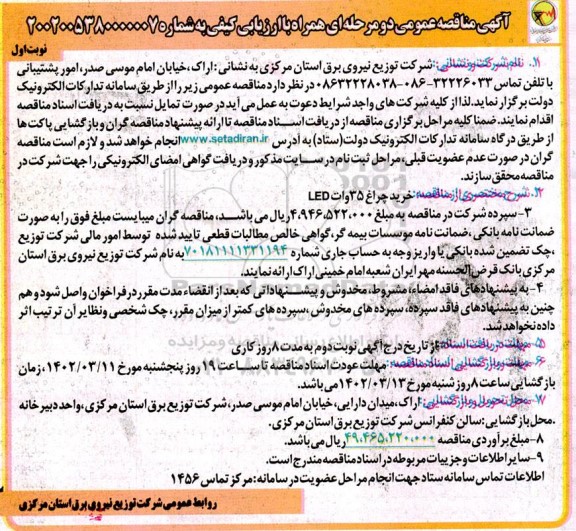 آگهی مناقصه عمومی دو مرحله ای همراه با ارزیابی کیفی به شماره ۲۰۰۲۰۰۵۳۸۰۰۰۰۰۰۷
نوبت اول
۱. نام شرکت و نشانی: شرکت توزیع نیروی برق استان مرکزی به نشانی: اراک، خیابان امام موسی صدر، امور پشتیبانی
با تلفن تماس ۳۲۲۲۶۰۳۳-۰۸۶-۰۸۶۳۲۲۲۸۰۳۸ در نظر دارد مناقصه عمومی زیر را از طریق سامانه تدارکات الکترونیک
دولت برگزار نماید. لذا از کلیه شرکت های واجد شرایط دعوت به عمل می آید در صورت تمایل نسبت به دریافت اسناد مناقصه
اقدام نمایند. ضمنا کلیه مراحل برگزاری مناقصه از دریافت اسناد مناقصه تا ارائه پیشنهاد مناقصه گران و بازگشایی پاکت ها
از طریق درگاه سامانه تدارکات الکترونیک دولت (ستاد) به آدرس www.setadiran.ir انجام خواهد شد و لازم است مناقصه
گران در صورت عدم عضویت قبلی، مراحل ثبت نام در سایت مذکور و دریافت گواهی امضای الکترونیکی را جهت شرکت در
مناقصه محقق سازند.
۲. شرح مختصری از مناقصه: خرید چراغ ۳۵ وات LED
۳- سپرده شرکت در مناقصه به مبلغ ۴،۹۴۶،۵۲۲،۰۰۰ ریال می باشد، مناقصه گران میبایست مبلغ فوق را به صورت
ضمانت نامه بانکی، ضمانت نامه موسسات بیمه گر، گواهی خالص مطالبات قطعی تایید شده توسط امور مالی شرکت توزیع
، چک تضمین شده بانکی یا واریز وجه به حساب جاری شماره ۷۰۱۸۱۱۱۱۳۳۱۱۹۴ به نام شرکت توزیع نیروی برق استان
مرکزی بانک قرض الحسنه مهر ایران شعبه امام خمینی اراک ارائه نمایند.
۴- به پیشنهادهای فاقد امضاء، مشروط، مخدوش و پیشنهاداتی که بعد از انقضاء مدت مقرر در فراخوان واصل شود و هم
چنین به پیشنهادهای فاقد سپرده، سپرده های مخدوش، سپرده های کمتر از میزان مقرر، چک شخصی و نظایر آن ترتیب اثر
داده نخواهد شد.
۵- مهلت دریافت اسناد: از تاریخ درج آگهی نوبت دوم به مدت ۸ روز کاری
۶- مهلت و بازگشایی اسناد مناقصه: مهلت عودت اسناد مناقصه تا ساعت ۱۹ روز پنجشنبه مورخ ۱۴۰۲/۰۳/۱۱، زمان
بازگشایی ساعت ۸ روز شنبه مورخ ۱۴۰۲/۰۳/۱۳ می باشد.
۷- محل تحویل و بازگشایی: اراک، میدان دارایی، خیابان امام موسی صدر، شرکت توزیع برق استان مرکزی، واحد دبیرخانه
.محل بازگشایی: سالن کنفرانس شرکت توزیع برق استان مرکزی.
۸- مبلغ برآوردی مناقصه ۴۹،۴۶۵،۲۲۰،۰۰۰ ریال می باشد.
۹- سایر اطلاعات و جزییات مربوطه در اسناد مناقصه مندرج است.
اطلاعات تماس سامانه ستاد جهت انجام مراحل عضویت در سامانه: مرکز تماس ۱۴۵۶
روابط عمومی شرکت توزیع نیروی برق استان مرکزی